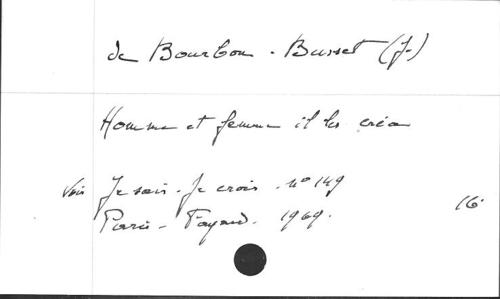 de Bourbon-Busset (J.)
Homme et femme il les créa
Voir Je sais-Je crois. n° 149
Paris - Fayard. 1969.
16.